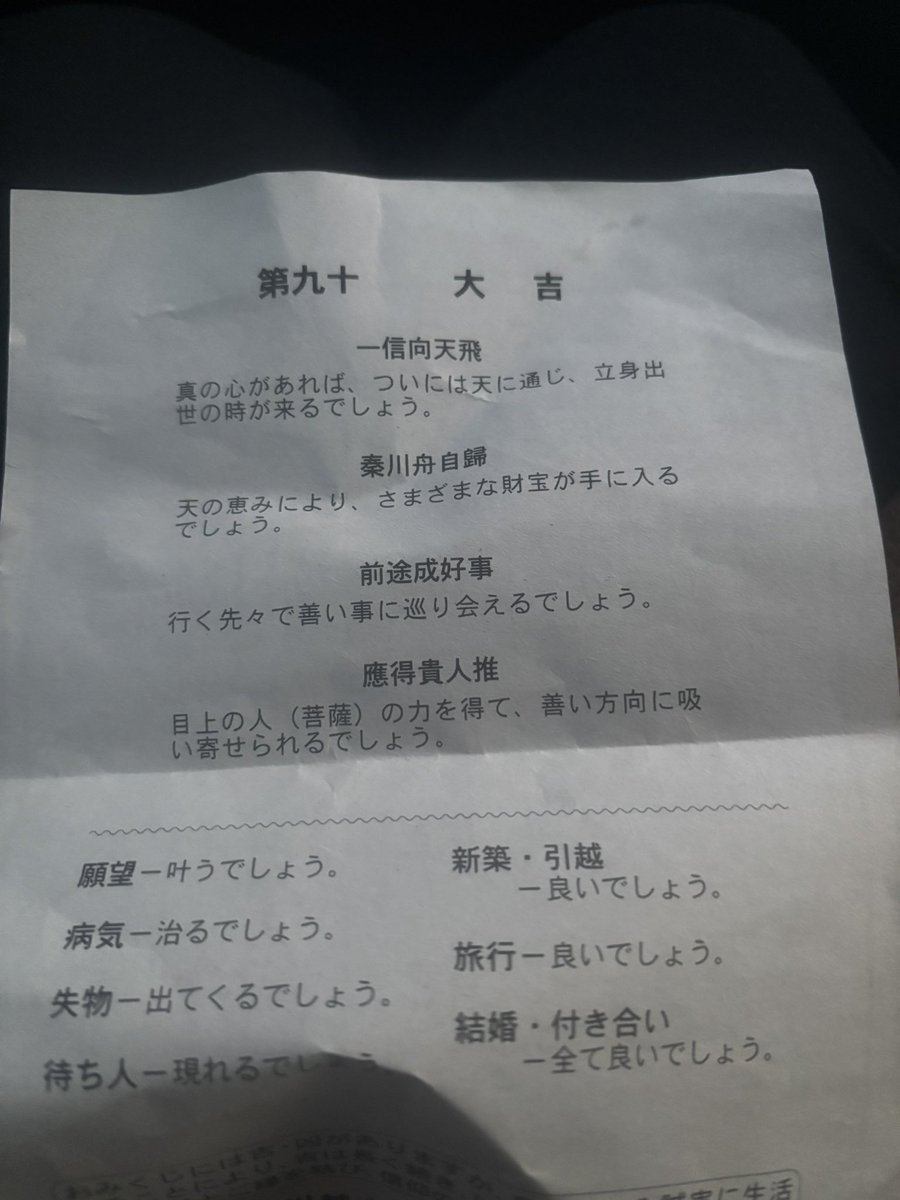 第九十 大吉
一信向天飛
真の心があれば、ついには天に通じ、立身出
世の時が来るでしょう。
秦川舟自歸
天の恵みにより、さまざまな財宝が手に入る
でしょう。
前途成好事
行く先々で善い事に巡り会えるでしょう。
應得貴人推
目上の人（菩薩）の力を得て、善い方向に吸
い寄せられるでしょう。
願望－叶うでしょう。
病気－治るでしょう。
失物－出てくるでしょう。
待ち人－現れるでしょう
新築・引越
－良いでしょう。
旅行－良いでしょう。
結婚・付き合い
－全て良いでしょう。
おみくじには吉・凶があります
に生活